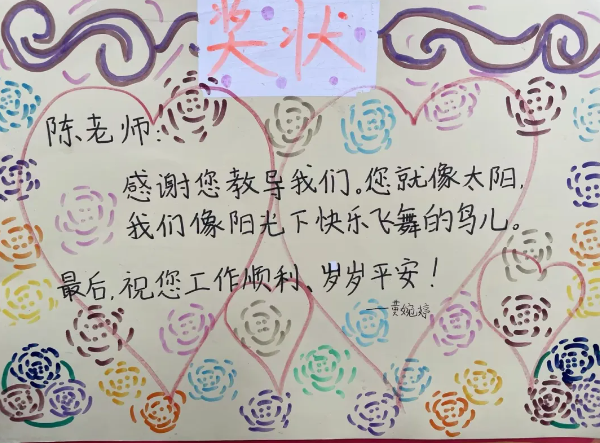 奖状
陈老师:
感谢您教导我们。您就像太阳,
我们像阳光下快乐飞舞的鸟儿。
最后,祝您工作顺利、岁岁平安!
——黄婉婷